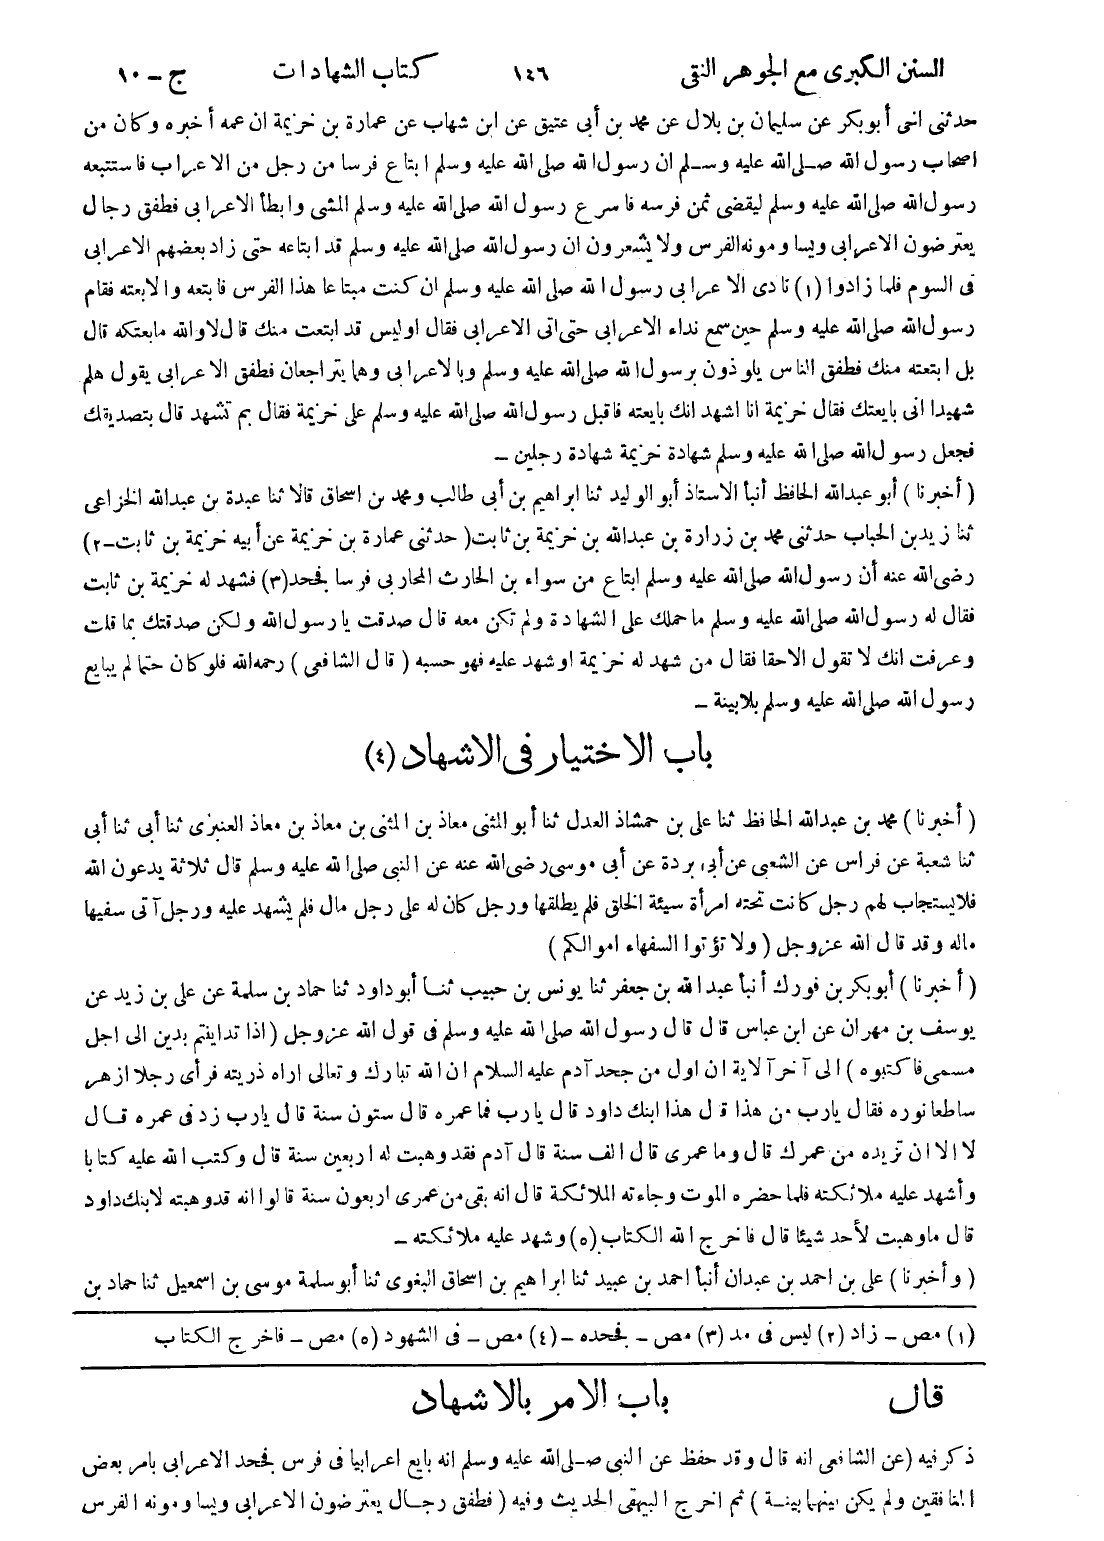 السنن الكبرى مع الجوهر النقى ١٤٦ كتاب الشهادات ج - ١٠
حدثنى اخى أبو بكر عن سليمان بن بلال عن محمد بن أبى عتيق عن ابن شهاب عن عمارة بن خزيمة ان عمه أخبره وكان من
اصحاب رسول الله صلى الله عليه وسلم ان رسول الله صلى الله عليه وسلم ابتاع فرسا من رجل من الاعراب فاستتبعه
رسول الله صلى الله عليه وسلم ليقضى ثمن فرسه فاسرع رسول الله صلى الله عليه وسلم المشى وابطأ الاعرابى فطفق رجال
يعترضون الاعرابى ويساومونه الفرس ولا يشعرون ان رسول الله صلى الله عليه وسلم قد ابتاعه حتى زاد بعضهم الاعرابى
فى السوم فلما زادوا (١) نادى الاعرابى رسول الله صلى الله عليه وسلم ان كنت مبتاعا هذا الفرس فابتعه والا بعته فقام
رسول الله صلى الله عليه وسلم حين سمع نداء الاعرابى حتى اتى الاعرابى فقال اوليس قد ابتعت منك قال لا والله مابعتكه قال
بل ابتعته منك فطفق الناس يلوذون برسول الله صلى الله عليه وسلم وبالاعرابى وهما يتراجعان فطفق الاعرابى يقول هلم
شهيدا انى بايعتك فقال خزيمة انا اشهد انك بايعته فاقبل رسول الله صلى الله عليه وسلم على خزيمة فقال بم تشهد قال بتصديقك
فجعل رسول الله صلى الله عليه وسلم شهادة خزيمة شهادة رجلين -
(أخبرنا) أبو عبد الله الحافظ أنبأ الاستاذ أبو الوليد ثنا ابراهيم بن أبى طالب ومحمد بن اسحاق قالا ثنا عبدة بن عبد الله الخزاعى
ثنا زيد بن الحباب حدثنى محمد بن زرارة بن عبد الله بن خزيمة بن ثابت (حدثنى عمارة بن خزيمة عن أبيه خزيمة بن ثابت-٢)
رضى الله عنه أن رسول الله صلى الله عليه وسلم ابتاع من سواء بن الحارث المحاربى فرسا فجحد (٣) فشهد له خزيمة بن ثابت
فقال له رسول الله صلى الله عليه وسلم ما حملك على الشهادة ولم تكن معه قال صدقت يا رسول الله ولكن صدقتك بما قلت
وعرفت انك لا تقول الا حقا فقال من شهد له خزيمة او شهد عليه فهو حسبه (قال الشافعى) رحمه الله فلو كان حتما لم يبايع
رسول الله صلى الله عليه وسلم بلا بينة -
باب الاختيار فى الاشهاد (٤)
(أخبرنا) محمد بن عبد الله الحافظ ثنا على بن حمشاذ العدل ثنا أبو المثنى معاذ بن المثنى بن معاذ بن معاذ العنبرى ثنا أبى ثنا أبى
ثنا شعبة عن فراس عن الشعبى عن أبى بردة عن أبى موسى رضى الله عنه عن النبى صلى الله عليه وسلم قال ثلاثة يدعون الله
فلا يستجاب لهم رجل كانت تحته امرأة سيئة الخلق فلم يطلقها ورجل كان له على رجل مال فلم يشهد عليه ورجل آتى سفيها
ماله وقد قال الله عزوجل (ولا تؤتوا السفهاء اموالكم)
(أخبرنا) أبو بكر بن فورك أنبأ عبد الله بن جعفر ثنا يونس بن حبيب ثنا أبو داود ثنا حماد بن سلمة عن على بن زيد عن
يوسف بن مهران عن ابن عباس قال قال رسول الله صلى الله عليه وسلم فى قول الله عزوجل (اذا تداينتم بدين الى اجل
مسمى فاكتبوه) الى آخر آلاية ان اول من جحد آدم عليه السلام ان الله تبارك وتعالى اراه ذريته فرأى رجلا ازهر
ساطعا نوره فقال يارب من هذا قال هذا ابنك داود قال يارب فما عمره قال ستون سنة قال يارب زد فى عمره قال
لا الا ان تزيده من عمرك قال وما عمرى قال الف سنة قال آدم فقد وهبت له اربعين سنة قال وكتب الله عليه كتابا
وأشهد عليه ملائكته فلما حضره الموت وجاءته الملائكة قال انه بقى من عمرى اربعون سنة قالوا انه قد وهبته لابنك داود
قال ما وهبت لأحد شيئا قال فاخرج الله الكتاب (٥) وشهد عليه ملائكته -
(وأخبرنا) على بن احمد بن عبدان أنبأ احمد بن عبيد ثنا ابراهيم بن اسحاق البغوى ثنا أبو سلمة موسى بن اسمعيل ثنا حماد بن
(١) مص - زاد (٢) ليس فى مد (٣) مص - فجحده - (٤) مص - فى الشهود (٥) مص - فاخرج الكتاب
قال باب الامر بالاشهاد
ذكر فيه (عن الشافعى انه قال وقد حفظ عن النبى صلى الله عليه وسلم انه بايع اعرابيا فى فرس فجحد الاعرابى بامر بعض
المنافقين ولم يكن بينهما بينة) ثم اخرج البيهقى الحديث وفيه (فطفق رجال يعترضون الاعرابى ويساومونه الفرس